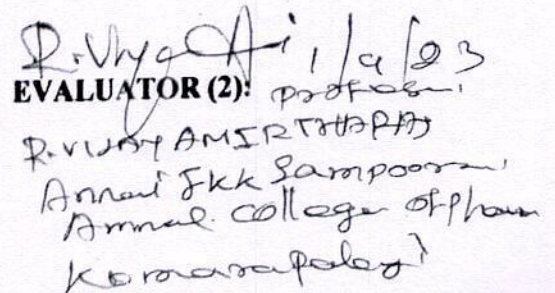 R. Vijay 1/9/23
EVALUATOR (2): Professor,
R. VIJAY AMIRTHARAJ
Annai JKK Sampoorani
Ammal College of Pharm
Komarapalayi